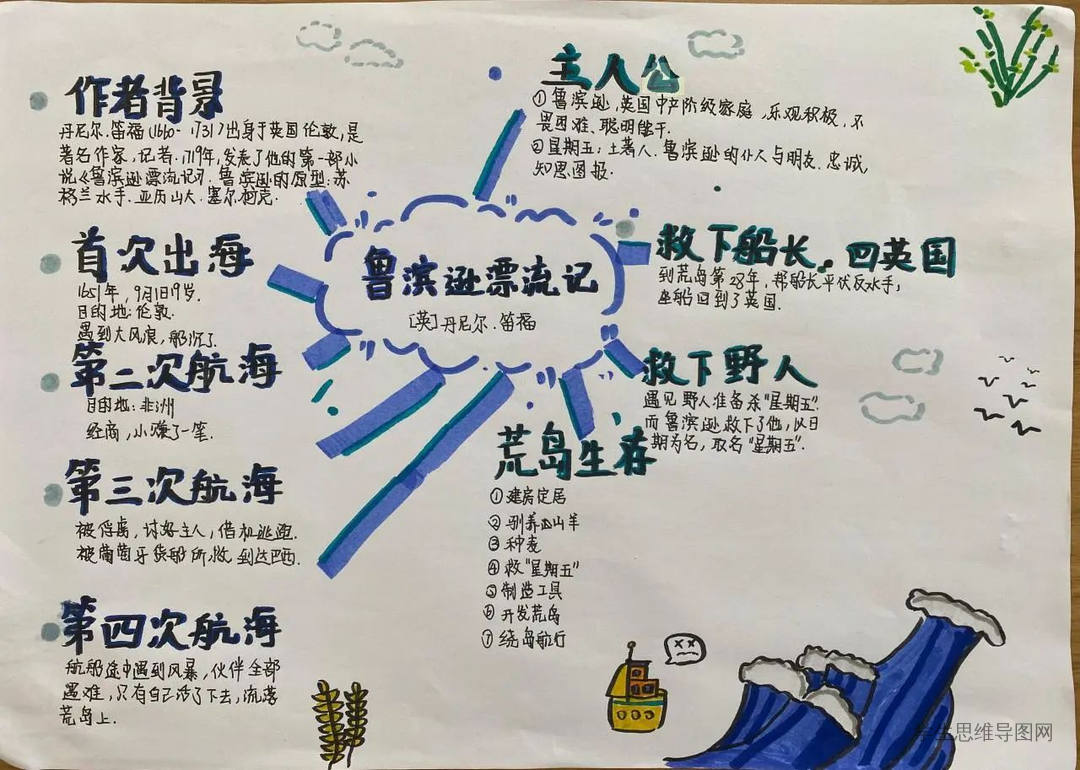 鲁滨逊漂流记
[英]丹尼尔.笛福
作者背景
丹尼尔.笛福(1660-1731)出身于英国伦敦,是
著名作家,记者.1719年,发表了他的第一部小
说《鲁滨逊漂流记》.鲁滨逊的原型:苏
格兰水手.亚历山大.塞尔柯克.
首次出海
1651年,9月1日19岁.
目的地:伦敦.
遇到大风浪,船沉了.
第二次航海
目的地:非洲
经商,小赚了一笔.
第三次航海
被俘虏,讨好主人,借机逃跑.
被葡萄牙货船所救.到达巴西.
第四次航海
航船途中遇到风暴,伙伴全部
遇难,只有自己活了下去,流落
荒岛上.
主人公
①鲁滨逊,英国中产阶级家庭,乐观积极,不
畏困难.聪明能干.
②星期五:土著人.鲁滨逊的仆人与朋友.忠诚,
知恩图报.
救下船长.回英国
到荒岛第28年,帮船长平伏反水手,
坐船回到了英国.
救下野人
遇见野人准备杀"星期五".
而鲁滨逊救下了他,以日
期为名,取名"星期五".
荒岛生存
①建房定居
②驯养山羊
③种麦
④救"星期五"
⑤制造工具
⑥开发荒岛
⑦绕岛航行
思维导图网